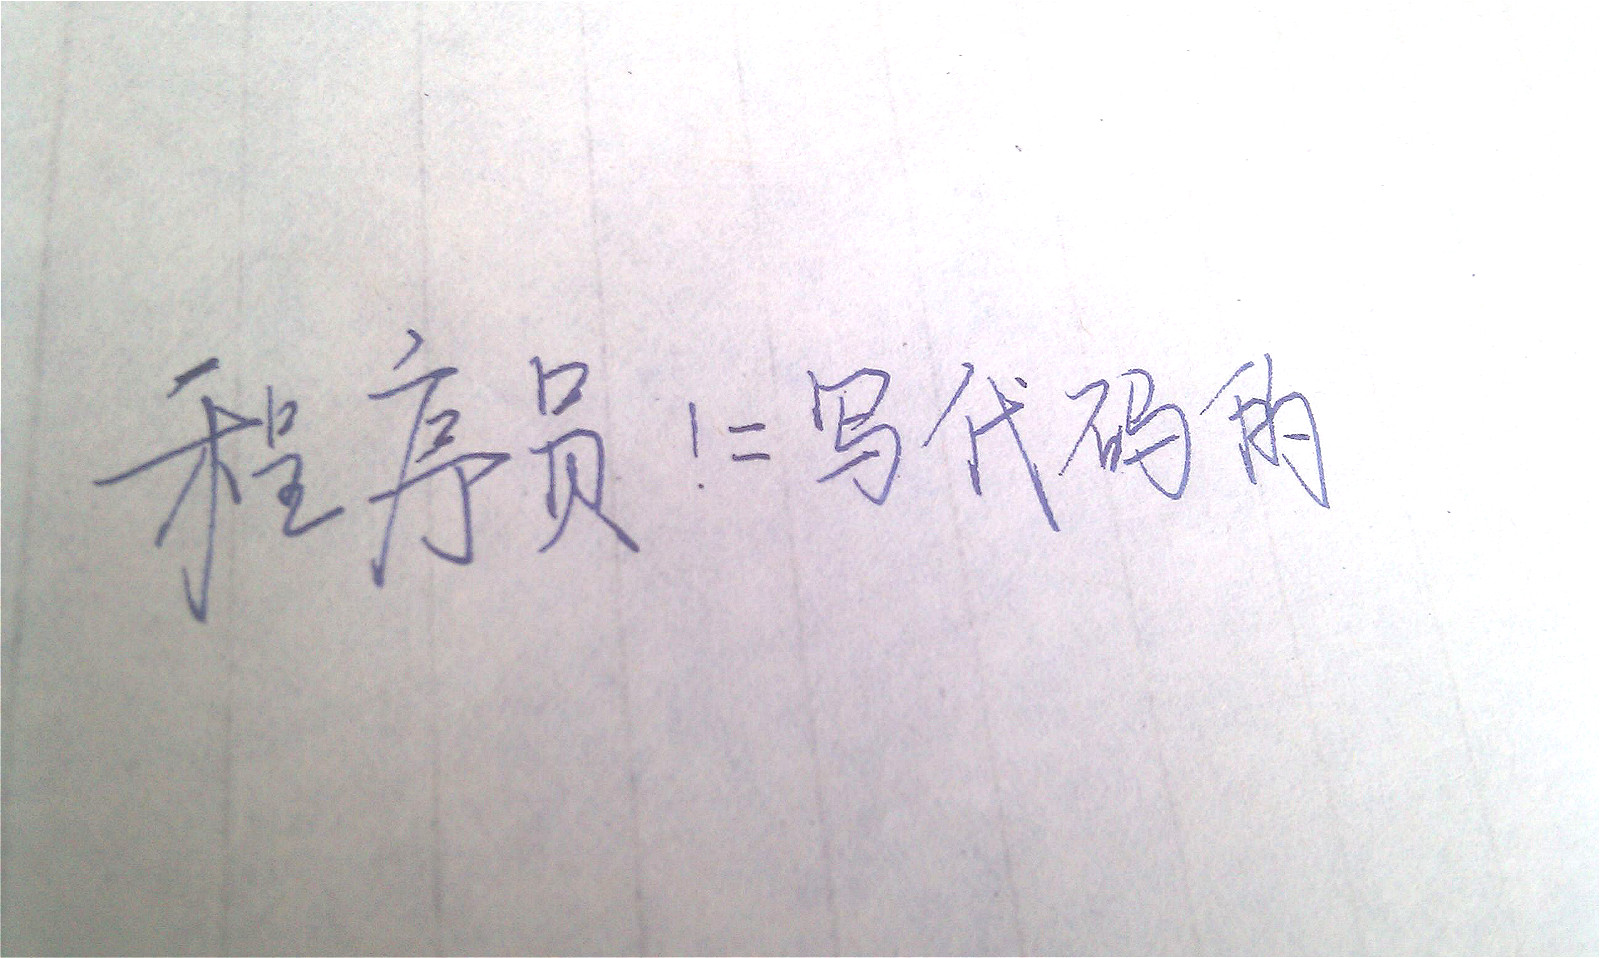 程序员 != 写代码的